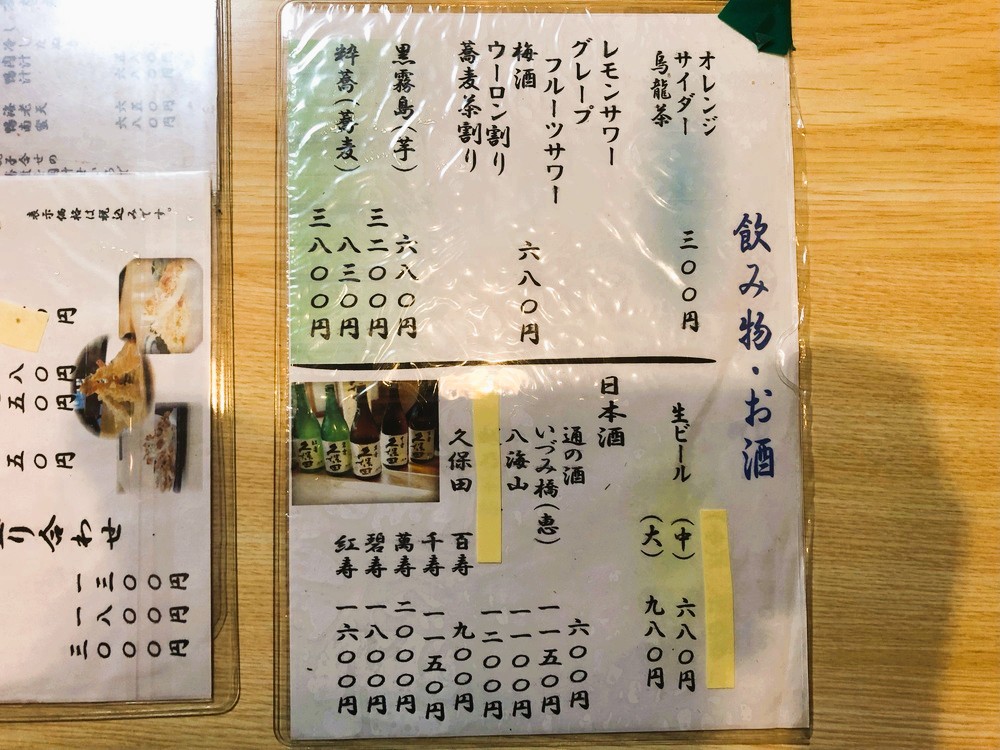 飲み物・お酒
オレンジ
サイダー 三〇〇円
烏龍茶
レモンサワー
グレープ
フルーツサワー
梅酒 六八〇円
ウーロン割り
蕎麦茶割り
黒霧島(芋) 六八〇円
三二〇〇円
粋蕎(蕎麦) 八三〇円
三八〇〇円
生ビール (中) 六八〇円
(大) 九八〇円
日本酒
通の酒 六〇〇円
いづみ橋(恵) 一一五〇円
八海山 一一〇〇円
一二〇〇円
久保田 百寿 九〇〇円
千寿 一一五〇円
萬寿 二〇〇〇円
碧寿 一八〇〇円
紅寿 一六〇〇円
久保田
久保田
表示価格は税込みです。
円
八〇円
五〇円
五〇円
り合わせ
一三〇〇円
一八〇〇円
三〇〇〇円